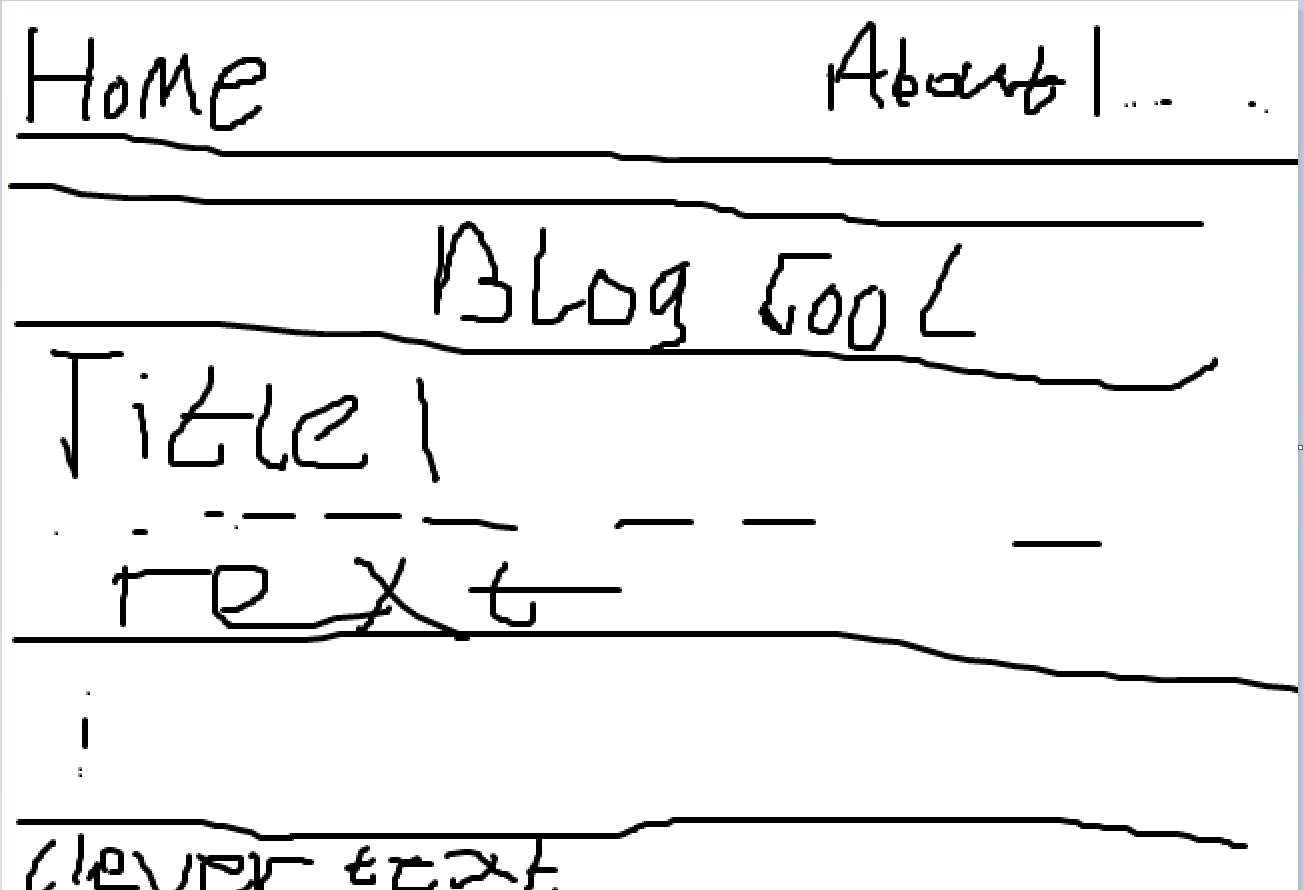 Home About | ...
BLog CooL
Title 1
Text
clever text